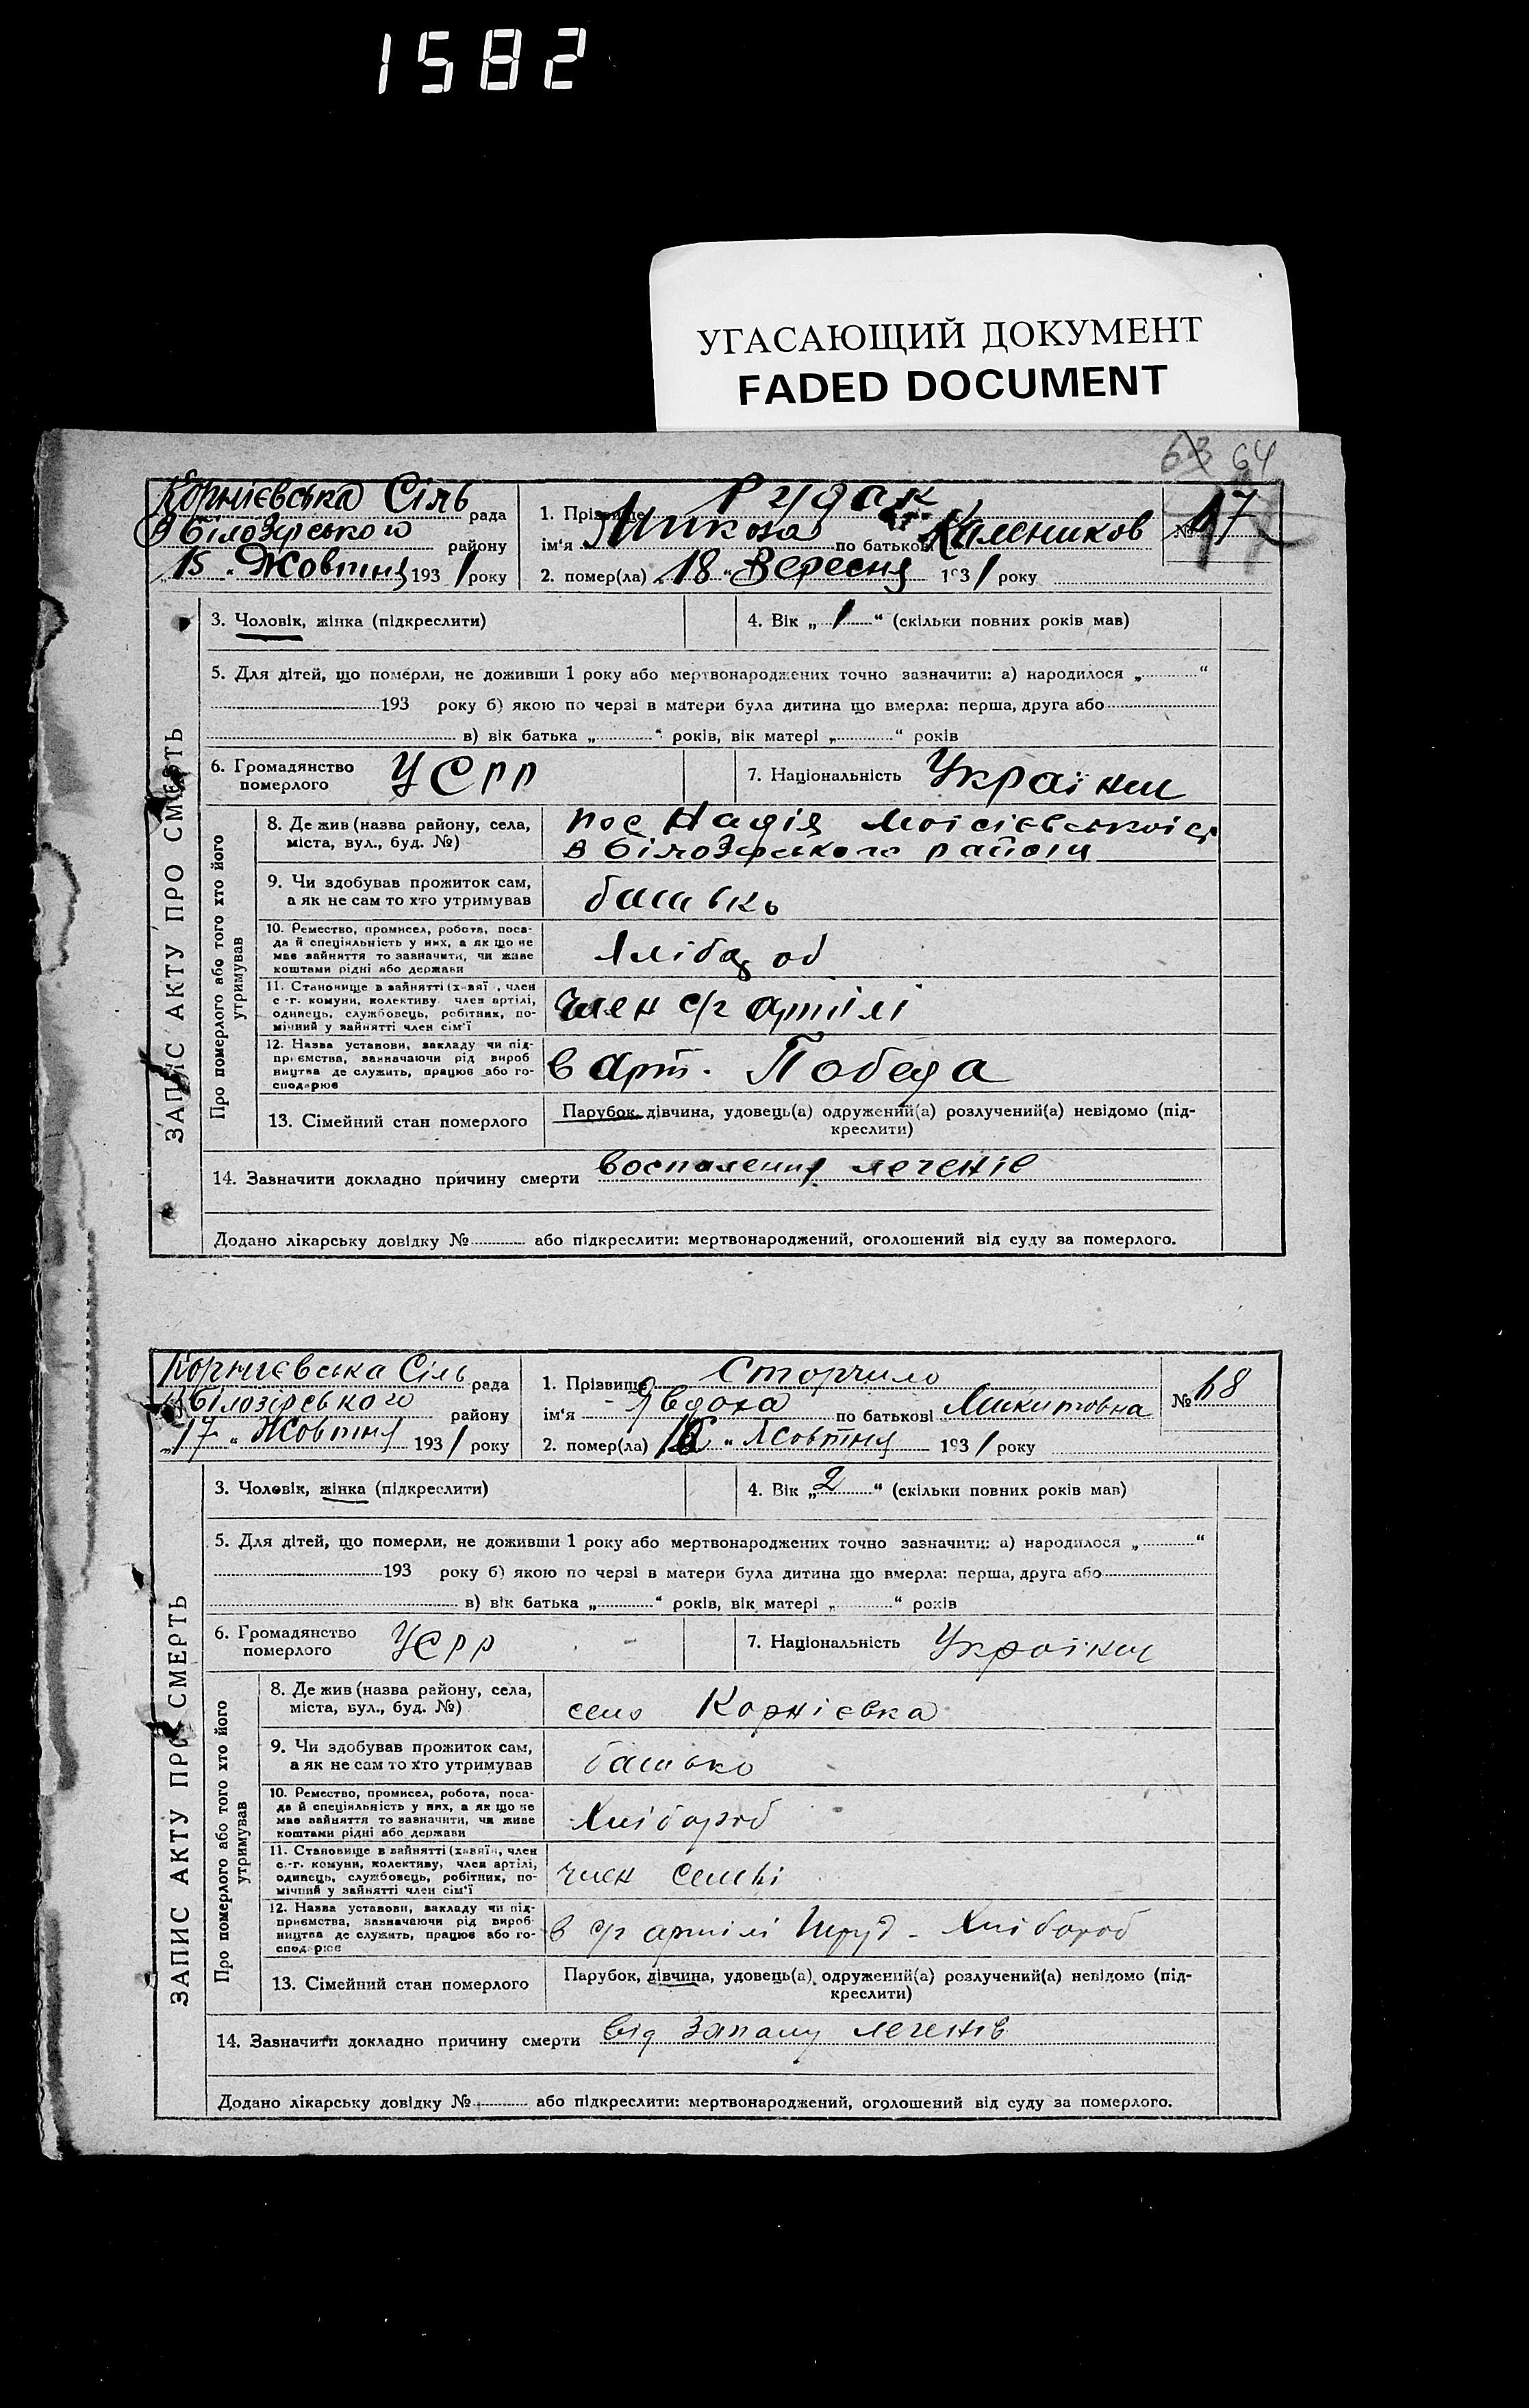 1582
УГАСАЮЩИЙ ДОКУМЕНТ
FADED DOCUMENT
63 64
Корнієвська Сіль рада
В білозірського району
„15„ Жовтня 1931 року
1. Прізвище Рудак
ім'я Микола по батькові Калеников
2. помер(ла) „18„ Вересня 1931 року
№ 17
ЗАПИС АКТУ ПРО СМЕРТЬ
3. Чоловік, жінка (підкреслити)
4. Вік „1“ (скільки повних років мав)
5. Для дітей, що померли, не доживши 1 року або мертвонароджених точно зазначити: а) народилося „ “
193 року б) якою по черзі в матери була дитина що вмерла: перша, друга або
в) вік батька „ “ років, вік матері „ “ років
6. Громадянство померлого УСРР
7. Національність Україн
Про померлого або того хто його утримував
8. Де жив (назва району, села, міста, вул., буд. №)
пос Надія
В білозірського району
9. Чи здобував прожиток сам, а як не сам то хто утримував
батько
10. Ремество, промисел, робота, посада й спеціяльність у них, а як що не має зайняття то зазначити, чи живе коштами рідні або держави
11. Становище в зайнятті (хазяїн, член с.-г. комуни, колективу, член артілі, одинець, службовець, робітник, помічний у зайнятті член сім'ї
член с/г артілі
12. Назва установи, закладу чи підприємства, зазначаючи рід виробництва де служить, працює або господарює
в арт. Победа
13. Сімейний стан померлого
Парубок, дівчина, удовець(а) одружений(а) розлучений(а) невідомо (підкреслити)
14. Зазначити докладно причину смерти воспаления легенів
Додано лікарську довідку № або підкреслити: мертвонароджений, оголошений від суду за померлого.
Корнієвська Сіль рада
В білозірського району
„17„ Жовтня 1931 року
1. Прізвище Сторчило
ім'я Явдоха по батькові Микитовна
2. помер(ла) 16 „ Жовтня 1931 року
№ 18
ЗАПИС АКТУ ПРО СМЕРТЬ
3. Чоловік, жінка (підкреслити)
4. Вік „2“ (скільки повних років мав)
5. Для дітей, що померли, не доживши 1 року або мертвонароджених точно зазначити: а) народилося „ “
193 року б) якою по черзі в матери була дитина що вмерла: перша, друга або
в) вік батька „ “ років, вік матері „ “ років
6. Громадянство померлого УСРР
7. Національність Українка
Про померлого або того хто його утримував
8. Де жив (назва району, села, міста, вул., буд. №)
село Корнієвка
9. Чи здобував прожиток сам, а як не сам то хто утримував
батько
10. Ремество, промисел, робота, посада й спеціяльність у них, а як що не має зайняття то зазначити, чи живе коштами рідні або держави
Хлібороб
11. Становище в зайнятті (хазяїн, член с.-г. комуни, колективу, член артілі, одинець, службовець, робітник, помічний у зайнятті член сім'ї
член семьї
12. Назва установи, закладу чи підприємства, зазначаючи рід виробництва де служить, працює або господарює
в с/г артілі Труд - Хлібороб
13. Сімейний стан померлого
Парубок, дівчина, удовець(а) одружений(а) розлучений(а) невідомо (підкреслити)
14. Зазначити докладно причину смерти від запалу легенів
Додано лікарську довідку № або підкреслити: мертвонароджений, оголошений від суду за померлого.